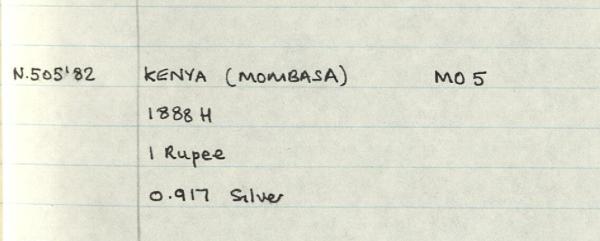 N.505'82 KENYA (MOMBASA) MO 5
1888 H
1 Rupee
0.917 Silver